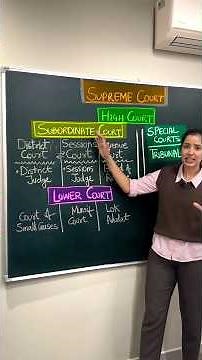 SUPREME COURT
HIGH COURT
SUBORDINATE COURT
SPECIAL COURTS
TRIBUNAL
District Court
Sessions Court
District Judge
Sessions Judge
LOWER COURT
Court of Small Causes
Munsif Court
Lok Adalat